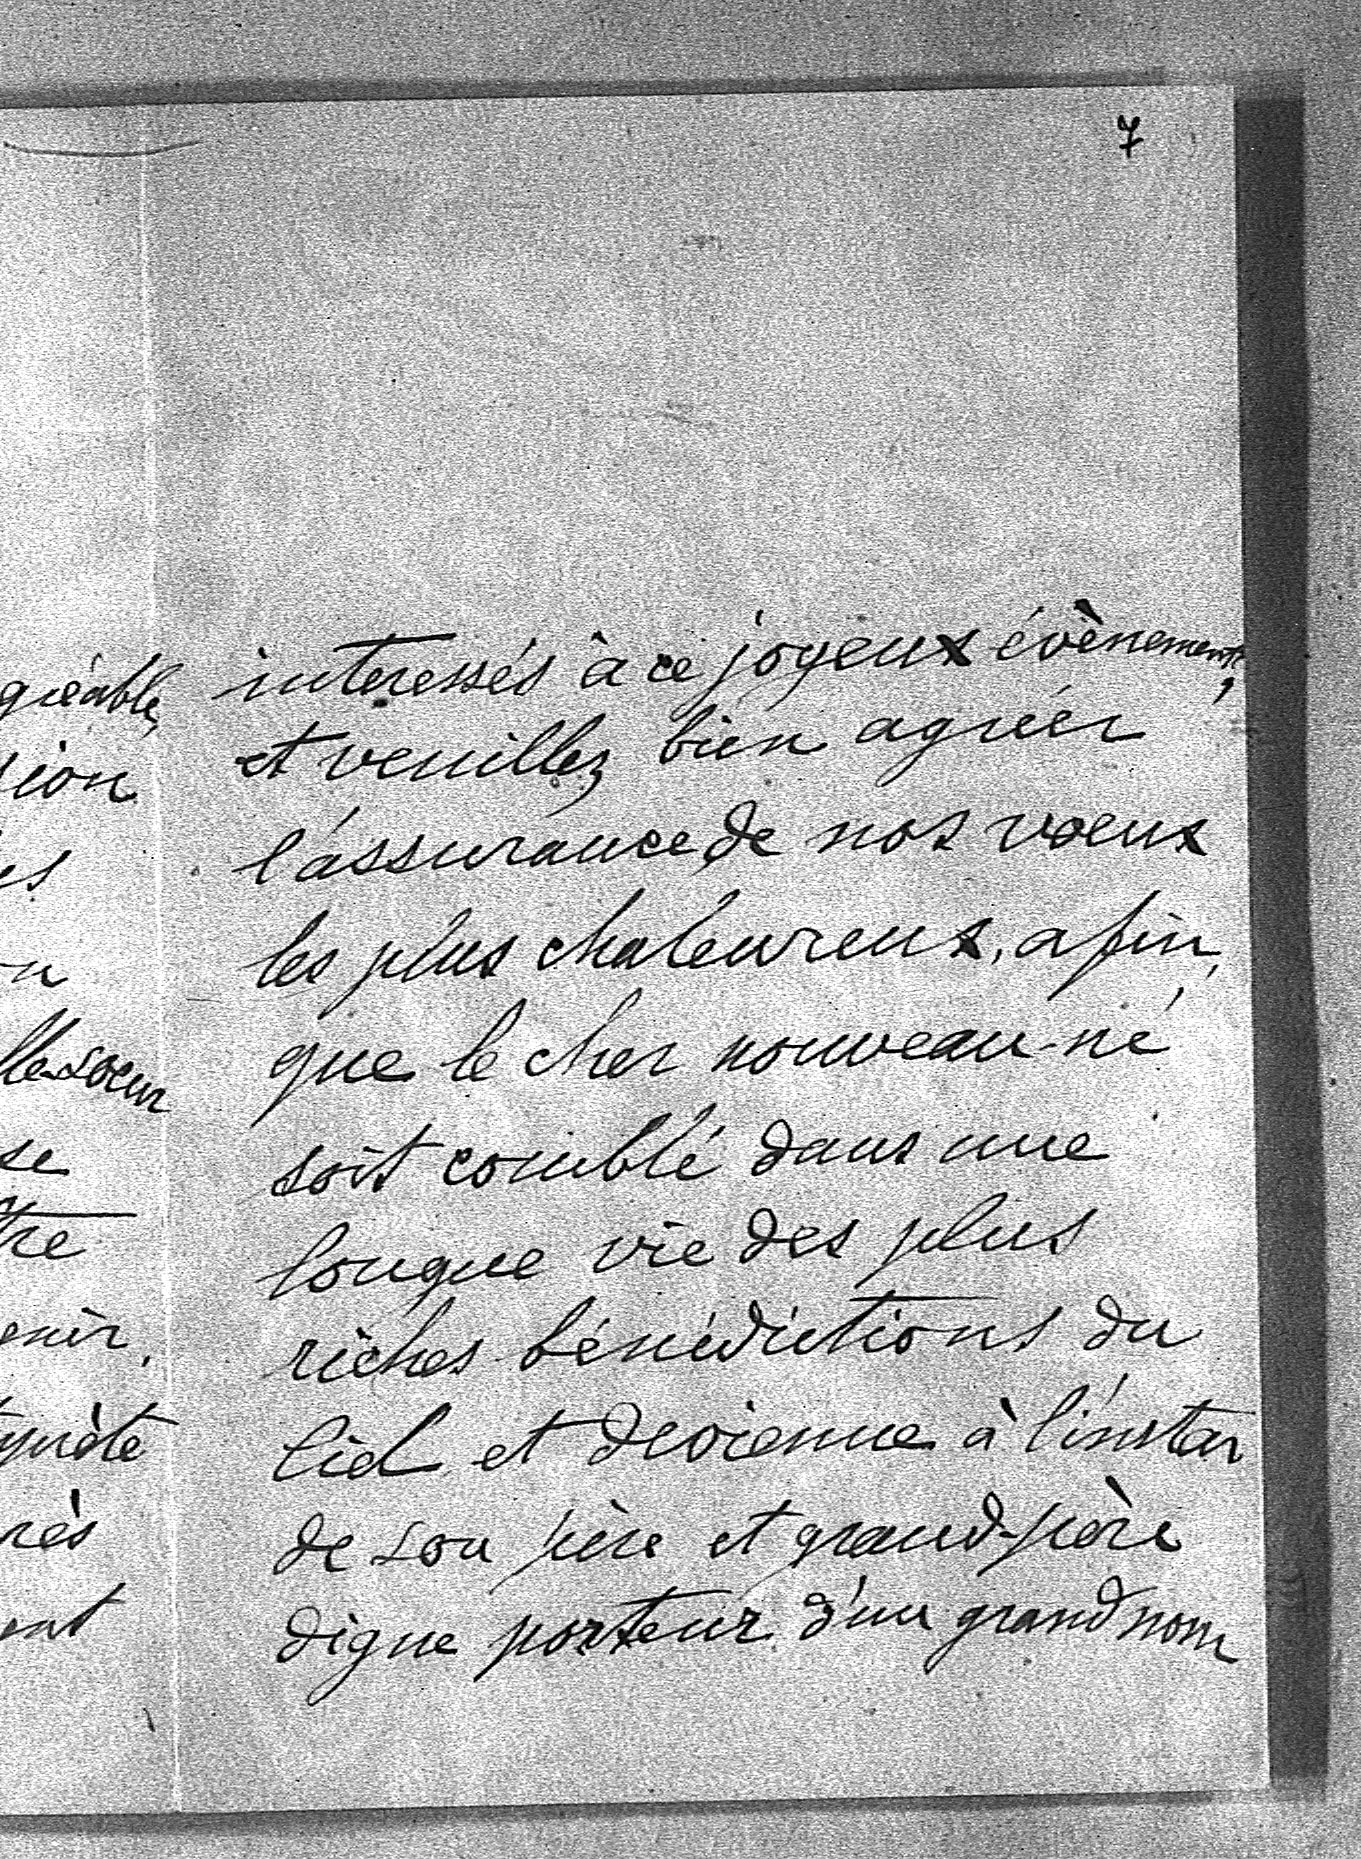 7
gréable,
sion
es
n
lle-soeur
se
tre
enir,
quète
rès
ent
interessés à ce joyeux évènement,
et veuillez bien agréer
l'assurance de nos voeux
les plus chaleureux, afin,
que le cher nouveau-né
soit comblé dans une
longue vie des plus
riches bénédictions du
Ciel et devienne à l'instar
de son père et grand-père
digne porteur d'un grand nom